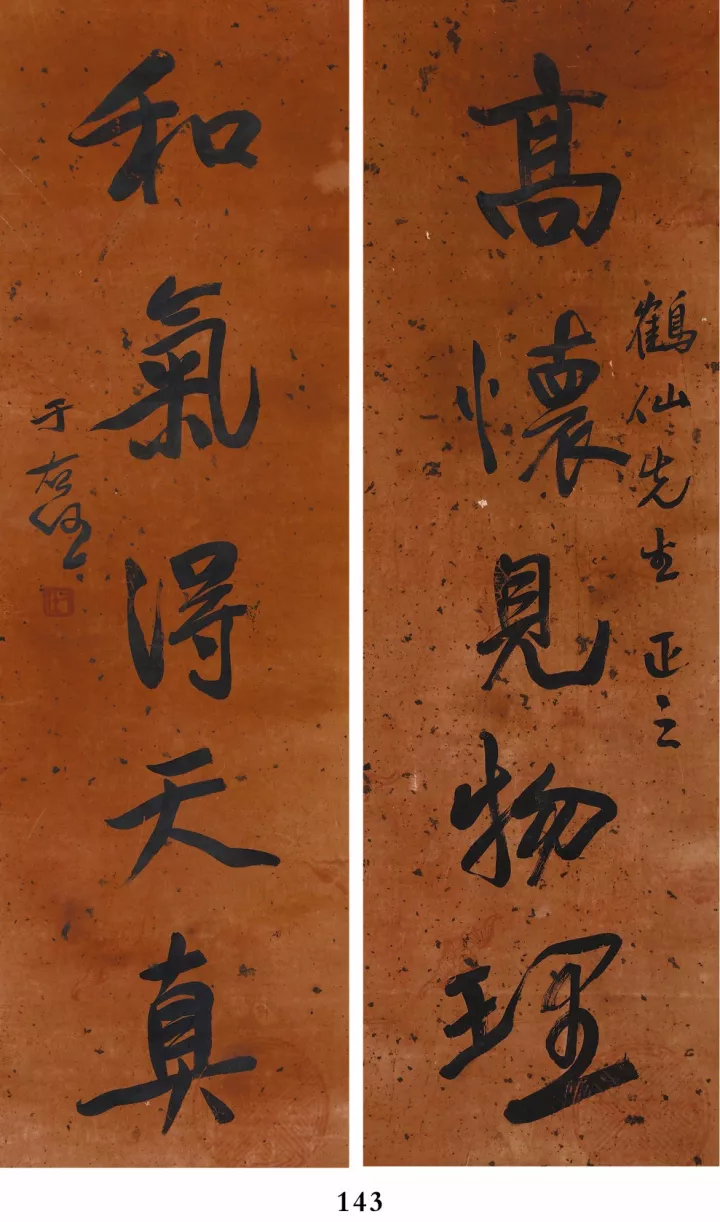 鶴仙先生正之
高懷見物理
和氣得天真
于右任
143